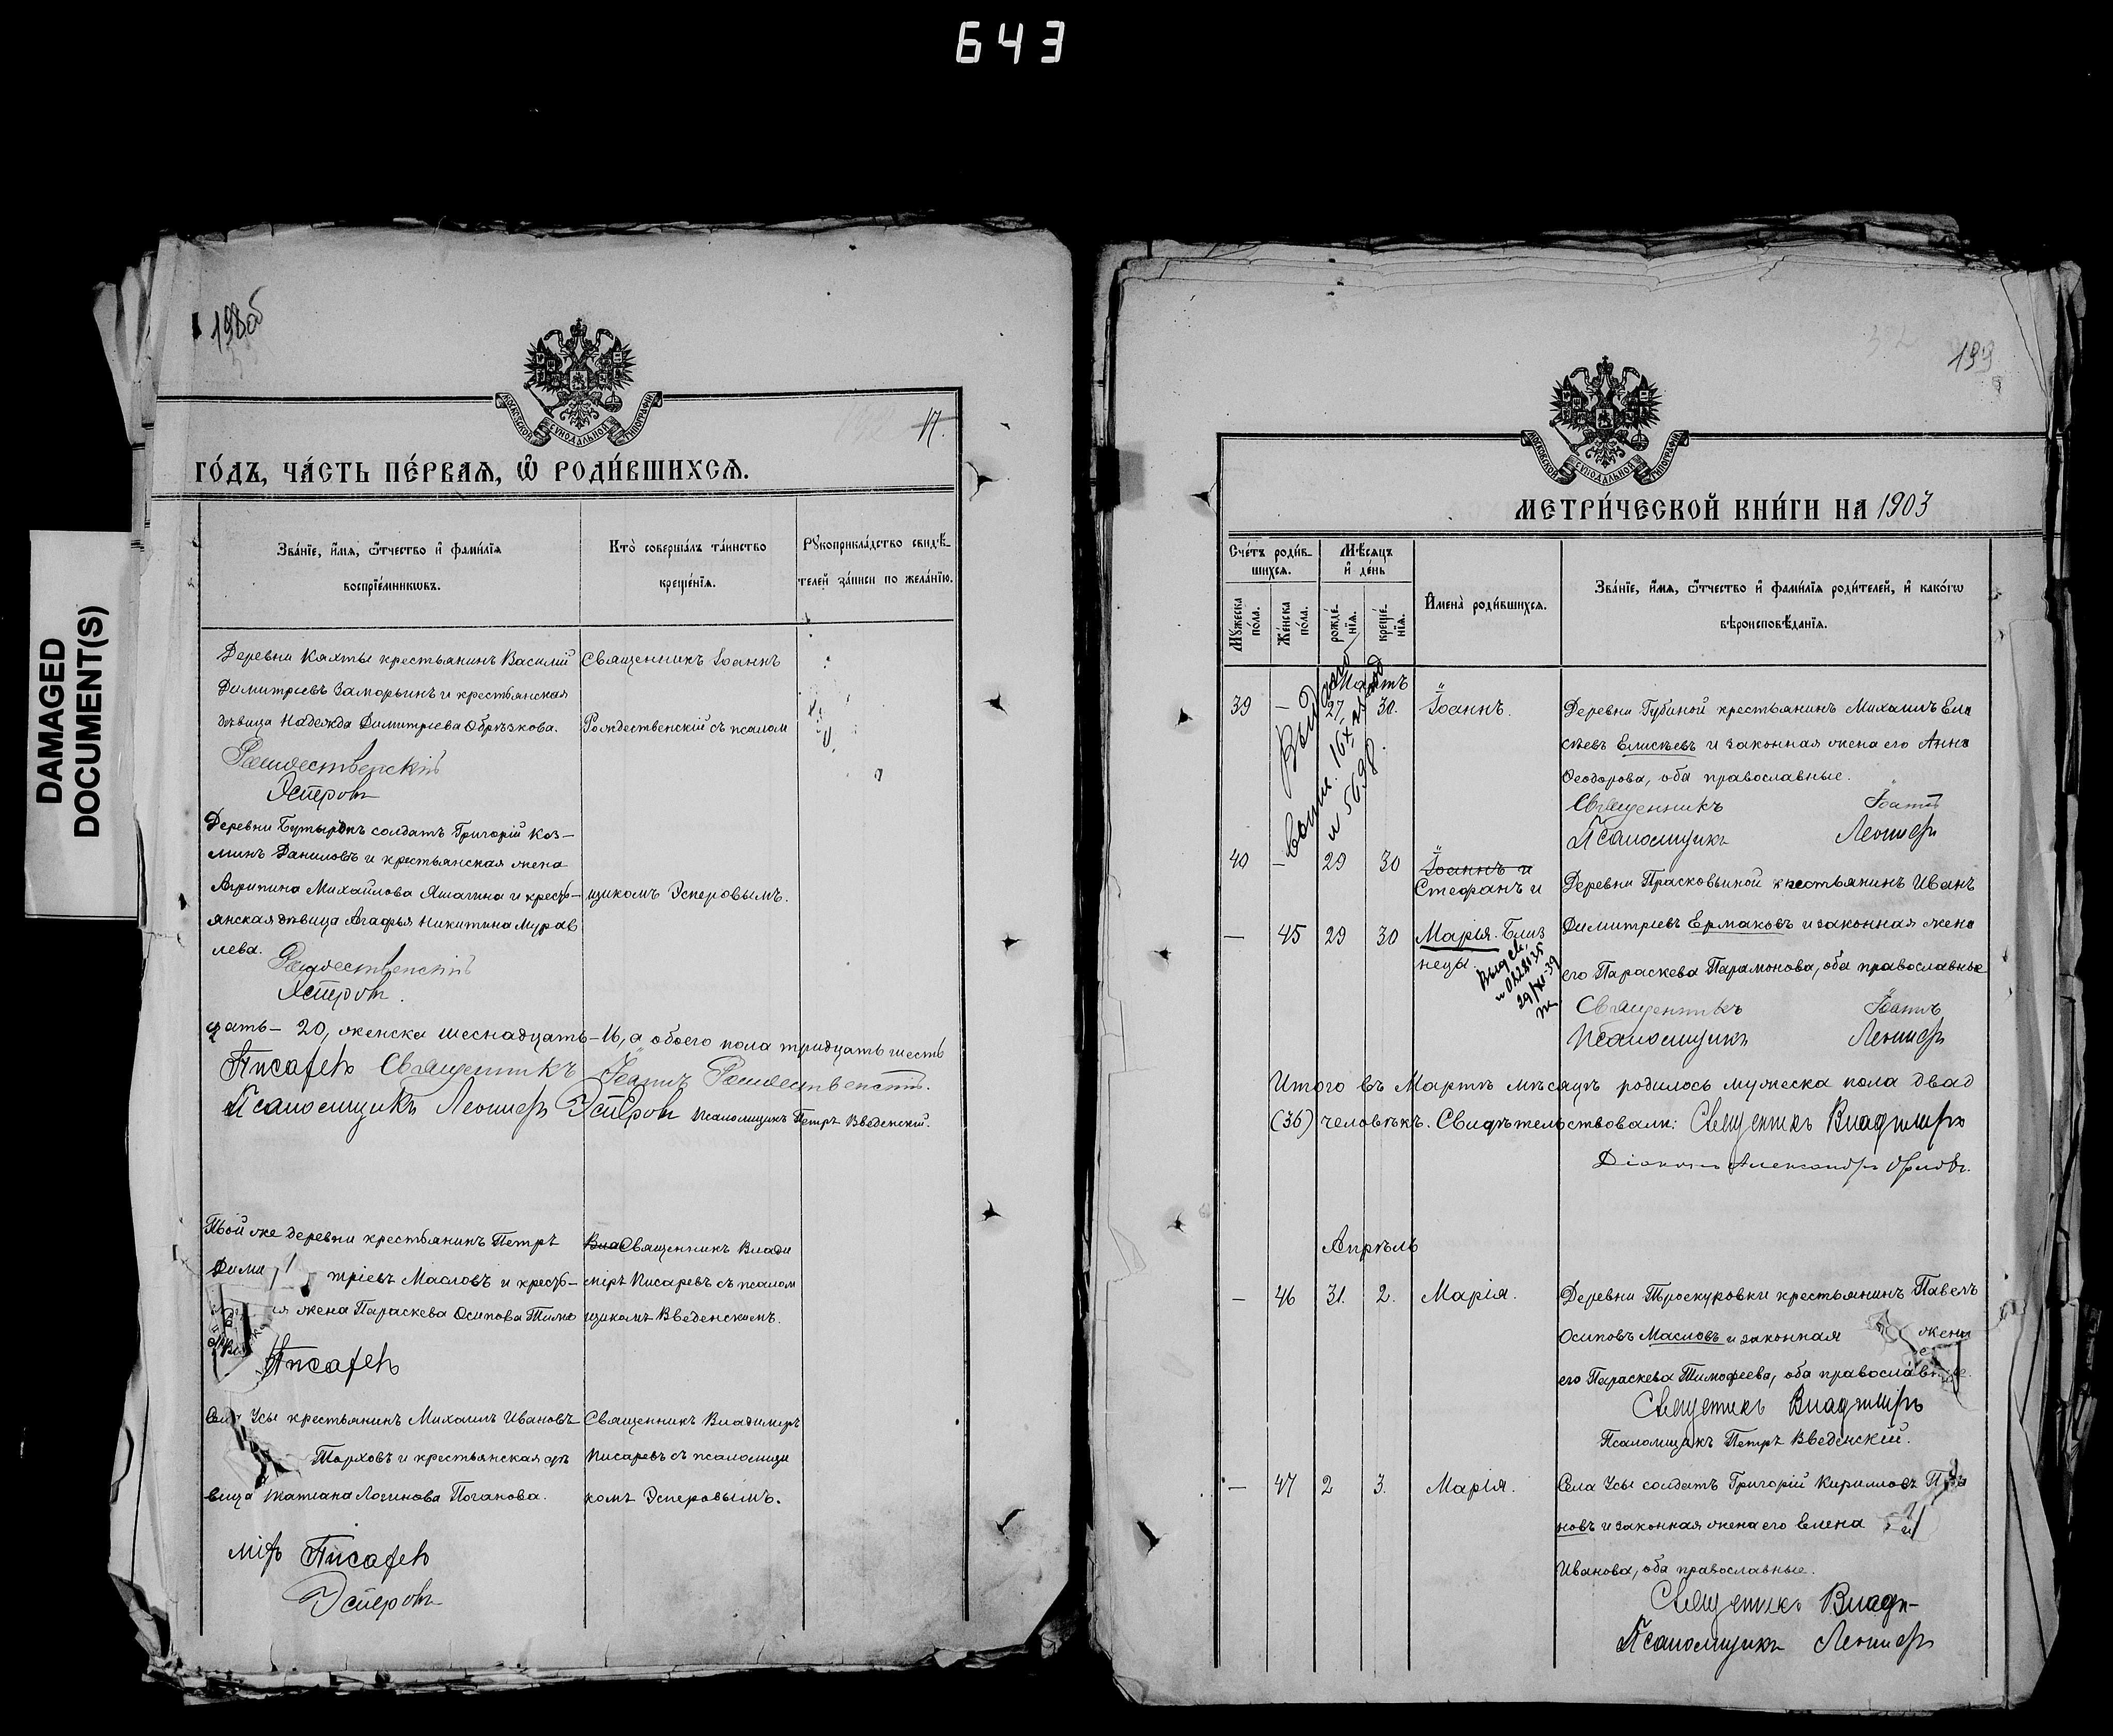 643
DAMAGED
DOCUMENT(S)
198об
МОСКОВСКОЙ СѴНОДАЛЬНОЙ ТИПОГРАФІИ
17.
ГО́ДЪ, ЧА́СТЬ ПЕ́РВАѦ, Ѿ РОДИ́ВШИХСѦ.
Зва́нїе, и҆́мѧ, ѻ҆́тчество и҆ фами́лїѧ
воспрїе́мниковъ.
Кто̀ соверша́лъ та́инство
креще́нїѧ.
Рꙋкоприкла́дство свидѣ́-
телей за́писи по жела́нїю.
Деревни Кяхты крестьянинъ Василій
Димитріевъ Заморынъ и крестьянская
дѣвица Надежда Димитріева Обрѣзкова.
Священникъ Іоаннъ
Рождественскій съ псалом
Рождественскій
Эсперовъ
Деревни Бутырокъ солдатъ Григорій Коз-
минъ Даниловъ и крестьянская жена
Агрипина Михайлова Яшагина и кресть-
янская дѣвица Агафья Никитина Мурав
лева.
щикомъ Эсперовымъ.
Рождественскій
Эсперовъ.
цать - 20, женска шеснадцать - 16, а обоего пола тридцать шесть
Писаревъ Священникъ Іоаннъ Рождественскій.
Псаломщикъ Леонидъ Эсперовъ Псаломщикъ Петръ Введенскій.
Той же деревни крестьянинъ Петръ
Дими тріевъ Масловъ и кресть-
ая жена Параскева Осипова Тимо
Священникъ Влади
міръ Писаревъ съ псалом
щикомъ Введенскимъ.
Писаревъ
Усы крестьянинъ Михаилъ Ивановъ
Торховъ и крестьянская дѣ
вица Татіана Логинова Поганова.
Священникъ Владиміръ
Писаревъ съ псаломщи
комъ Эсперовымъ.
міръ Писаревъ
Эсперовъ
199
МОСКОВСКОЙ СѴНОДАЛЬНОЙ ТИПОГРАФІИ
МЕТРИ́ЧЕСКОЙ КНИ́ГИ НА 1903
Сче́тъ роди́в-
шихсѧ.
Мѣ́сѧцъ
и҆ де́нь
Мꙋ́жеска
по́ла.
Же́нска
по́ла.
рожде́-
нїѧ.
креще́-
нїѧ.
И҆мена̀ роди́вшихсѧ.
Зва́нїе, и҆́мѧ, ѻ҆́тчество и҆ фами́лїѧ роди́телей, и҆ како́гѡ
вѣроисповѣ́данїѧ.
Мартъ
39 - 27 30. Іоаннъ.
Деревни Губиной крестьянинъ Михаилъ Ели
сѣевъ Елисѣевъ и законная жена его Анна
Ѳеодорова, оба православные.
Священникъ Іоаннъ
Псаломщикъ Леонидъ
40 - 29 30 Іоаннъ и
Стефанъ и
Деревни Прасковьиной крестьянинъ Иванъ
- 45 29 30 Марія. Близ
нецы.
Димитріевъ Ермаковъ и законная жена
его Параскева Парамонова, оба православные
Священникъ Іоаннъ
Псаломщикъ Леонидъ
Итого въ Мартѣ мѣсяцѣ родилось мужеска пола двад
(36) человѣкъ. Свидѣтельствовали: Священникъ Владиміръ
Діаконъ Александръ Орловъ.
Апрѣль
- 46 31. 2. Марія.
Деревни Троекуровки крестьянинъ Павелъ
Осиповъ Масловъ и законная жена
его Параскева Тимофеева, оба православные.
Священникъ Владиміръ
Псаломщикъ Петръ Введенскій.
- 47 2 3. Марія.
Села Усы солдатъ Григорій Кирилловъ
новъ и законная жена его Елена
Иванова, оба православные.
Священникъ Влади-
Псаломщикъ Леонидъ